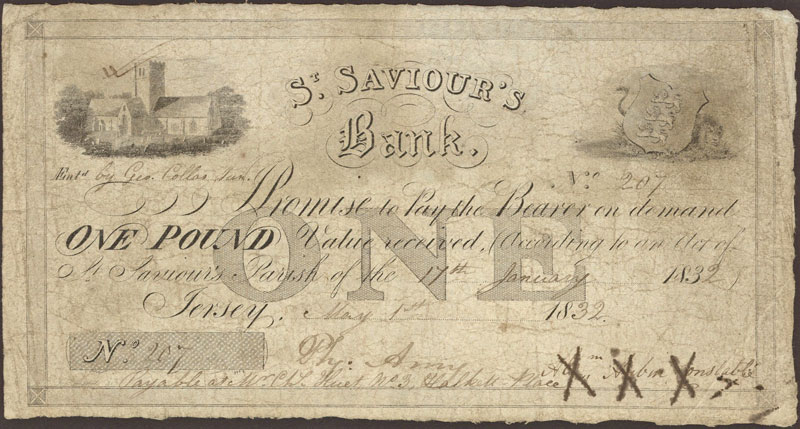 St. SAVIOUR'S
Bank.
Entd. by Geo. Collas Jun.
No. 207
I Promise to Pay the Bearer on demand
ONE POUND Value received, (According to an Act of
St. Saviour's Parish of the 17th January 1832)
Jersey, May 1st 1832.
ONE
No. 207
Ph. Amy
Aubin Constable
Payable at Mr. Chs. Huet, No. 3, Halkett Place
X X X